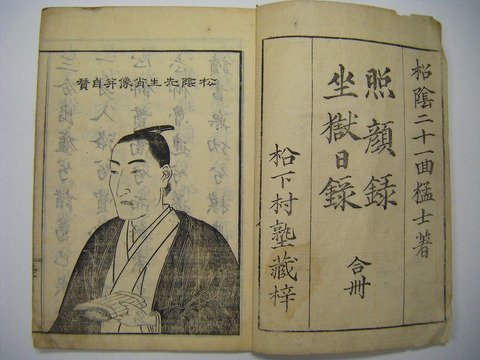 松陰二十一回猛士著
照顔録
坐獄日録
合冊
松下村塾藏梓
松陰先生肖像并自賛